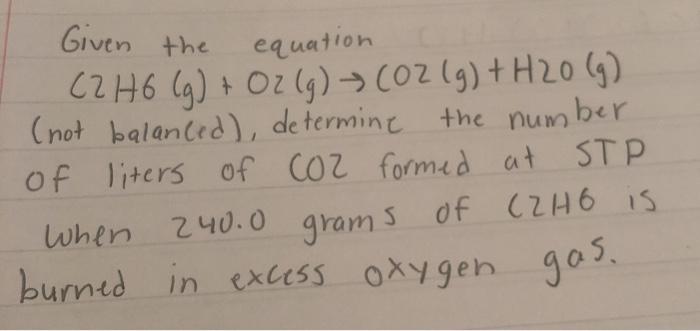 Given the equation
C2H6 (g) + O2(g) → CO2 (g) + H2O (g)
(not balanced), determine the number
of liters of CO2 formed at STP
when 240.0 grams of C2H6 is
burned in excess oxygen gas.